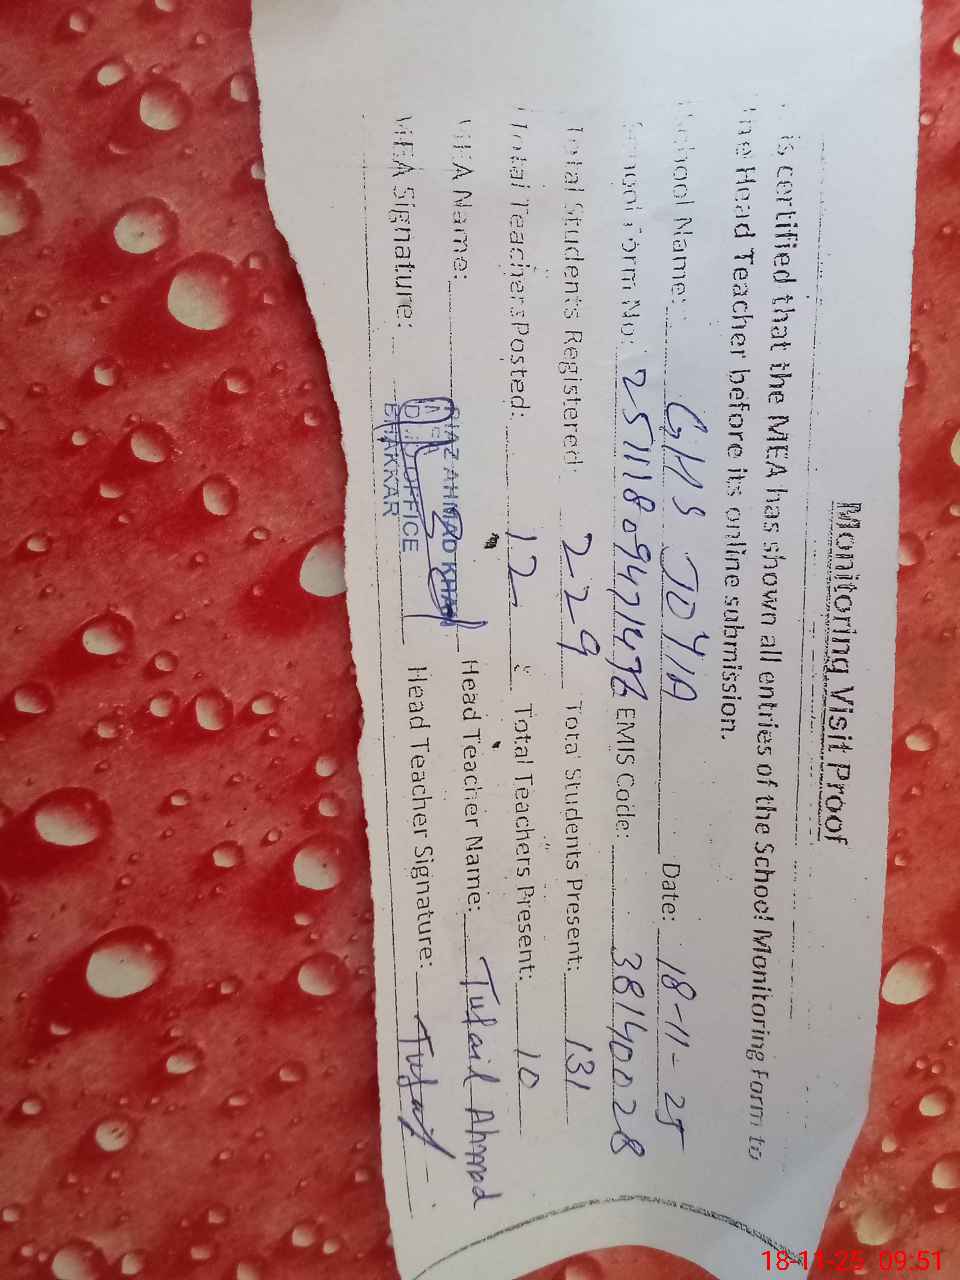 Monitoring Visit Proof
is certified that the MEA has shown all entries of the School Monitoring Form to
the Head Teacher before its online submission.
School Name: GHS JDYIA Date: 18-11-25
School Form No: EMIS Code: 38140028
Total Students Registered: 229 Total Students Present: 131
Total Teachers Posted: 12 Total Teachers Present: 10
MEA Name: AHMAD KHAN Head Teacher Name: Tufail Ahmad
MEA Signature: OFFICE Head Teacher Signature: Tufail
BHAKKAR
18-11-25 09:51